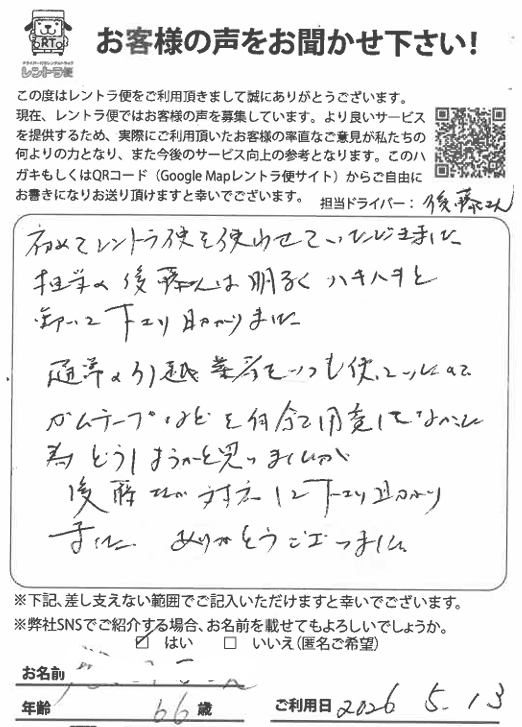 RT
ドライバー付きレンタルトラック
レントラ便
お客様の声をお聞かせ下さい!
この度はレントラ便をご利用頂きまして誠にありがとうございます。
現在、レントラ便ではお客様の声を募集しています。より良いサービス
を提供するため、実際にご利用頂いたお客様の率直なご意見が私たちの
何よりの力となり、また今後のサービス向上の参考となります。このハ
ガキもしくはQRコード（Google Mapレントラ便サイト）からご自由に
お書きになりお送り頂けますと幸いでございます。
担当ドライバー：後藤さん
初めてレントラ便を使わせていただきました
担当の後藤さんは明るくハキハキと
動いて下さり助かりました
通常の引越業者をいつも使っていたので
ガムテープなどを自分で用意してなかった
為どうしようかと思いましたが
後藤さんが対応して下さり助かり
ました ありがとうございました。
※下記、差し支えない範囲でご記入いただけますと幸いでございます。
※弊社SNSでご紹介する場合、お名前を載せてもよろしいでしょうか。
☑ はい □ いいえ（匿名ご希望）
お名前
年齢 66歳
ご利用日 2026 5.13